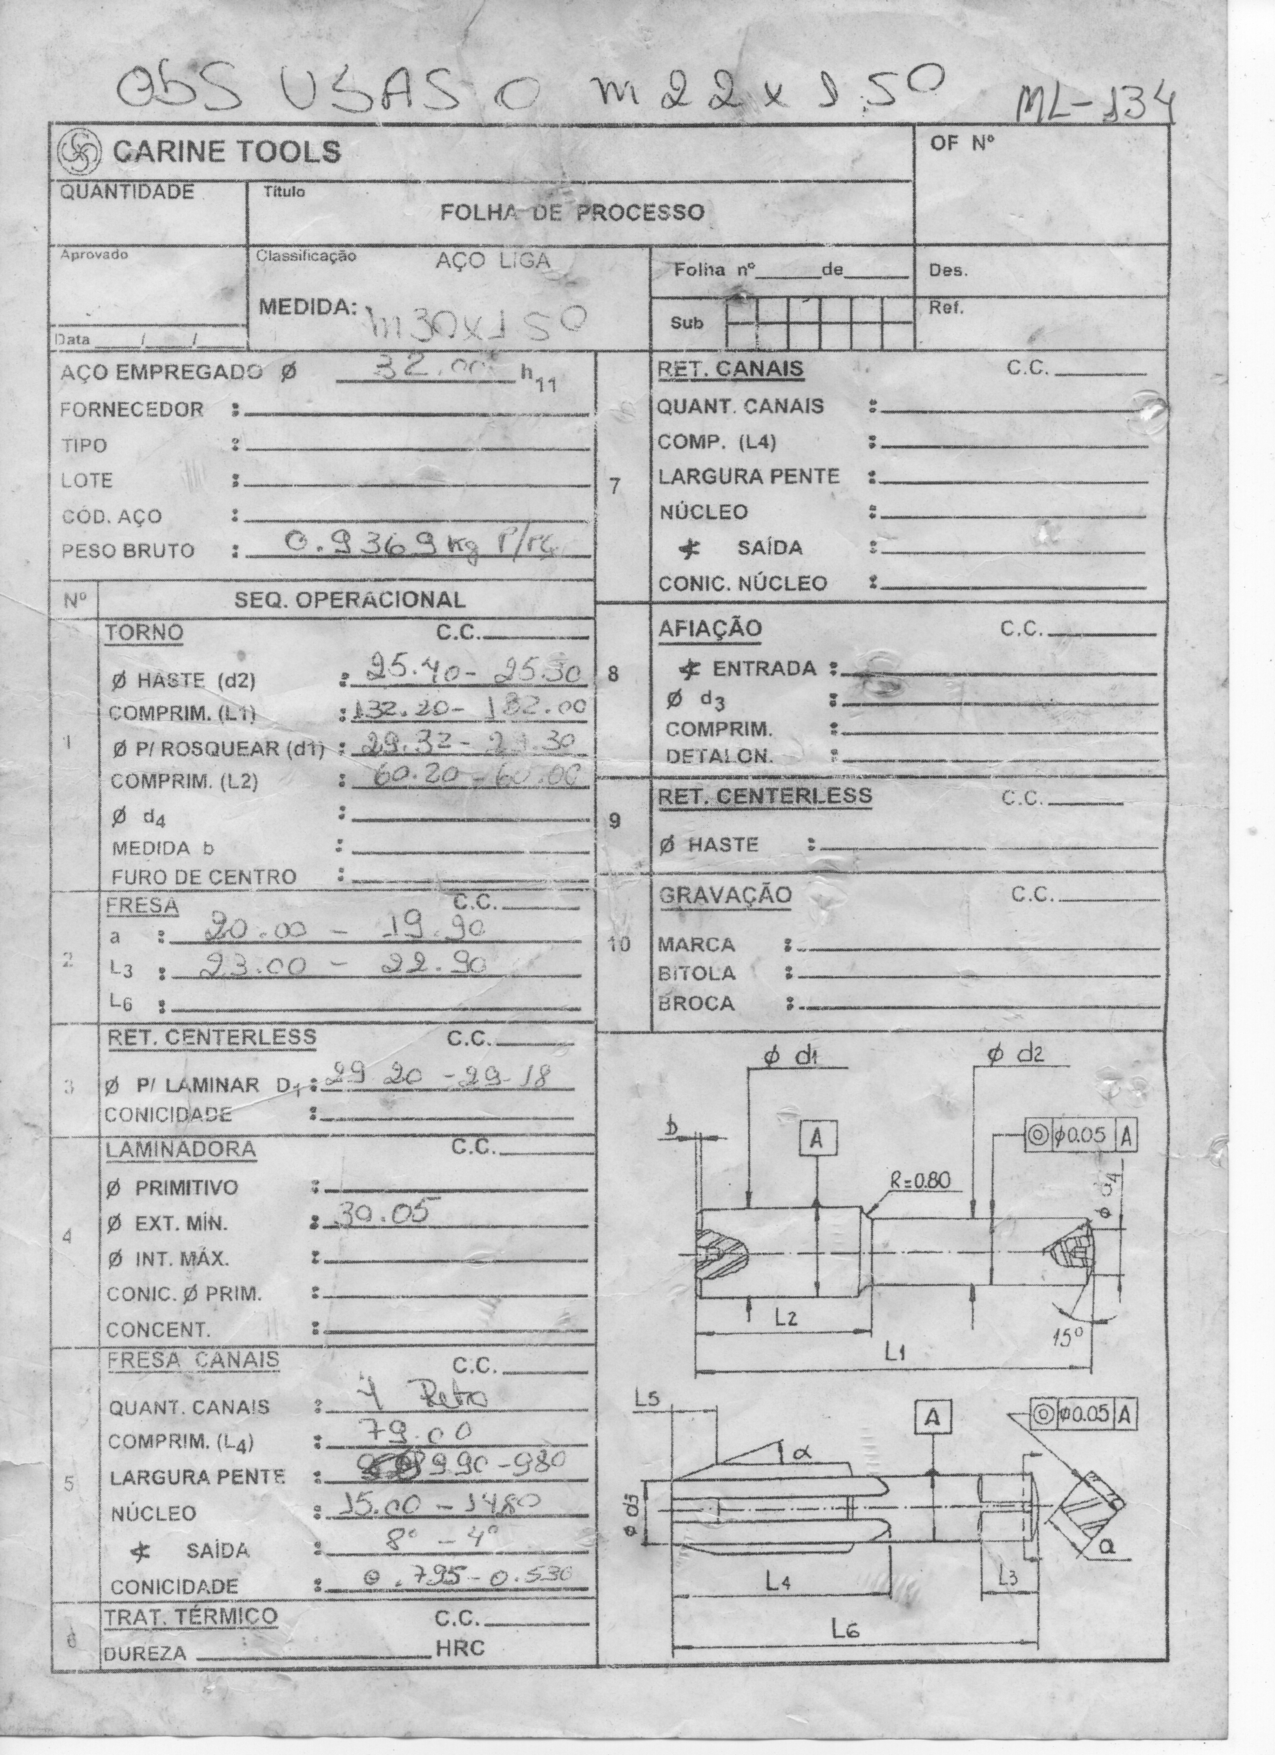 ObS USAS O M22x1.50
ML-134
CARINE TOOLS
OF Nº
QUANTIDADE
Título
FOLHA DE PROCESSO
Aprovado
Classificação AÇO LIGA
MEDIDA: M30x1.50
Data ___/___/___
Folha nº____de____
Des.
Sub
Ref.
AÇO EMPREGADO Ø 32.00 h11
FORNECEDOR :
TIPO :
LOTE :
CÓD. AÇO :
PESO BRUTO : 0.9369 kg P/
Nº SEQ. OPERACIONAL
1
TORNO C.C.
Ø HASTE (d2) : 25.40 - 25.30
COMPRIM. (L1) : 132.20 - 132.00
Ø P/ ROSQUEAR (d1) : 29.32 - 29.30
COMPRIM. (L2) : 60.20 - 60.00
Ø d4 :
MEDIDA b :
FURO DE CENTRO :
2
FRESA C.C.
a : 20.00 - 19.90
L3 : 23.00 - 22.90
L6 :
3
RET. CENTERLESS C.C.
Ø P/ LAMINAR D1 : 29 20 - 29.18
CONICIDADE :
4
LAMINADORA C.C.
Ø PRIMITIVO :
Ø EXT. MÍN. : 30.05
Ø INT. MÁX. :
CONIC. Ø PRIM. :
CONCENT. :
5
FRESA CANAIS C.C.
QUANT. CANAIS : 4 Reto
COMPRIM. (L4) : 79.00
LARGURA PENTE : 990 - 980
NÚCLEO : 15.00 - 1480
∢ SAÍDA : 8° - 4°
CONICIDADE : 0.795 - 0.530
6
TRAT. TÉRMICO C.C.
DUREZA HRC
7
RET. CANAIS C.C.
QUANT. CANAIS :
COMP. (L4) :
LARGURA PENTE :
NÚCLEO :
∢ SAÍDA :
CONIC. NÚCLEO :
8
AFIAÇÃO C.C.
∢ ENTRADA :
Ø d3 :
COMPRIM. :
DETALON. :
9
RET. CENTERLESS C.C.
Ø HASTE :
10
GRAVAÇÃO C.C.
MARCA :
BITOLA :
BROCA :
Ø d1
Ø d2
b
A
◎ Ø0.05 A
R=0.80
Ø d4
L2
15º
L1
L5
A
◎ Ø0.05 A
α
Ø d3
a
L4
L3
L6